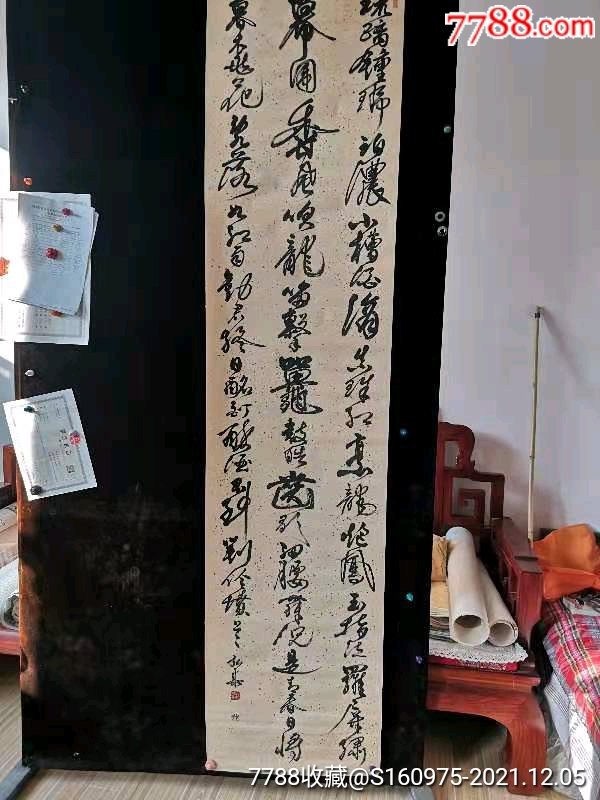 7788.com
琉璃鍾琥珀濃小槽酒滴真珠紅烹龍炮鳳玉脂泣羅屏繡
幕圍香風吹龍笛擊鼉鼓皓齒歌細腰舞況是青春日將
暮桃花亂落如紅雨勸君終日酩酊醉酒不到劉伶墳上土
7788收藏@S160975-2021.12.05